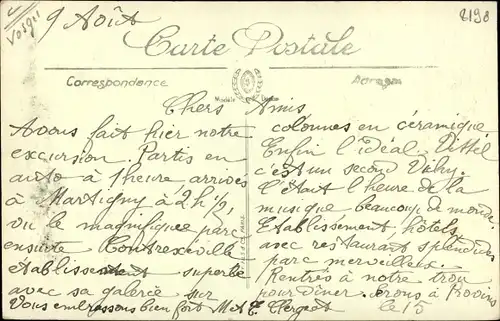 Vosges
9 Août
2198
Carte Postale
Correspondance
Adresse
Modèle Déposé
Chers Amis
Avons fait hier notre
excursion. Partis en
auto à 1 heure arrivés
à Martigny à 2h ½,
vu le magnifique parc
ensuite Contrexéville
établissement superbe
avec sa galerie sur
Vous embrassons bien fort M et E. Clergeot
colonnes en céramique
Enfin l'idéal. Vittel
c'est un second Vichy.
C'était l'heure de la
musique beaucoup de monde.
Etablissement, hôtels
avec restaurant splendides
parc merveilleux.
Rentrés à notre trou
pour dîner. Serons à Provins
le 15